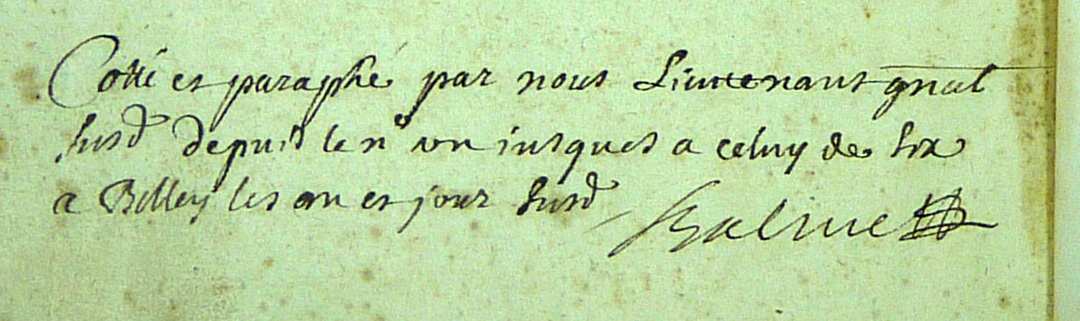 Cotté et paraphé par nous Lieutenant gnal
susd depuis le n° un iusques a celuy de six
a Belley les an et jour susd